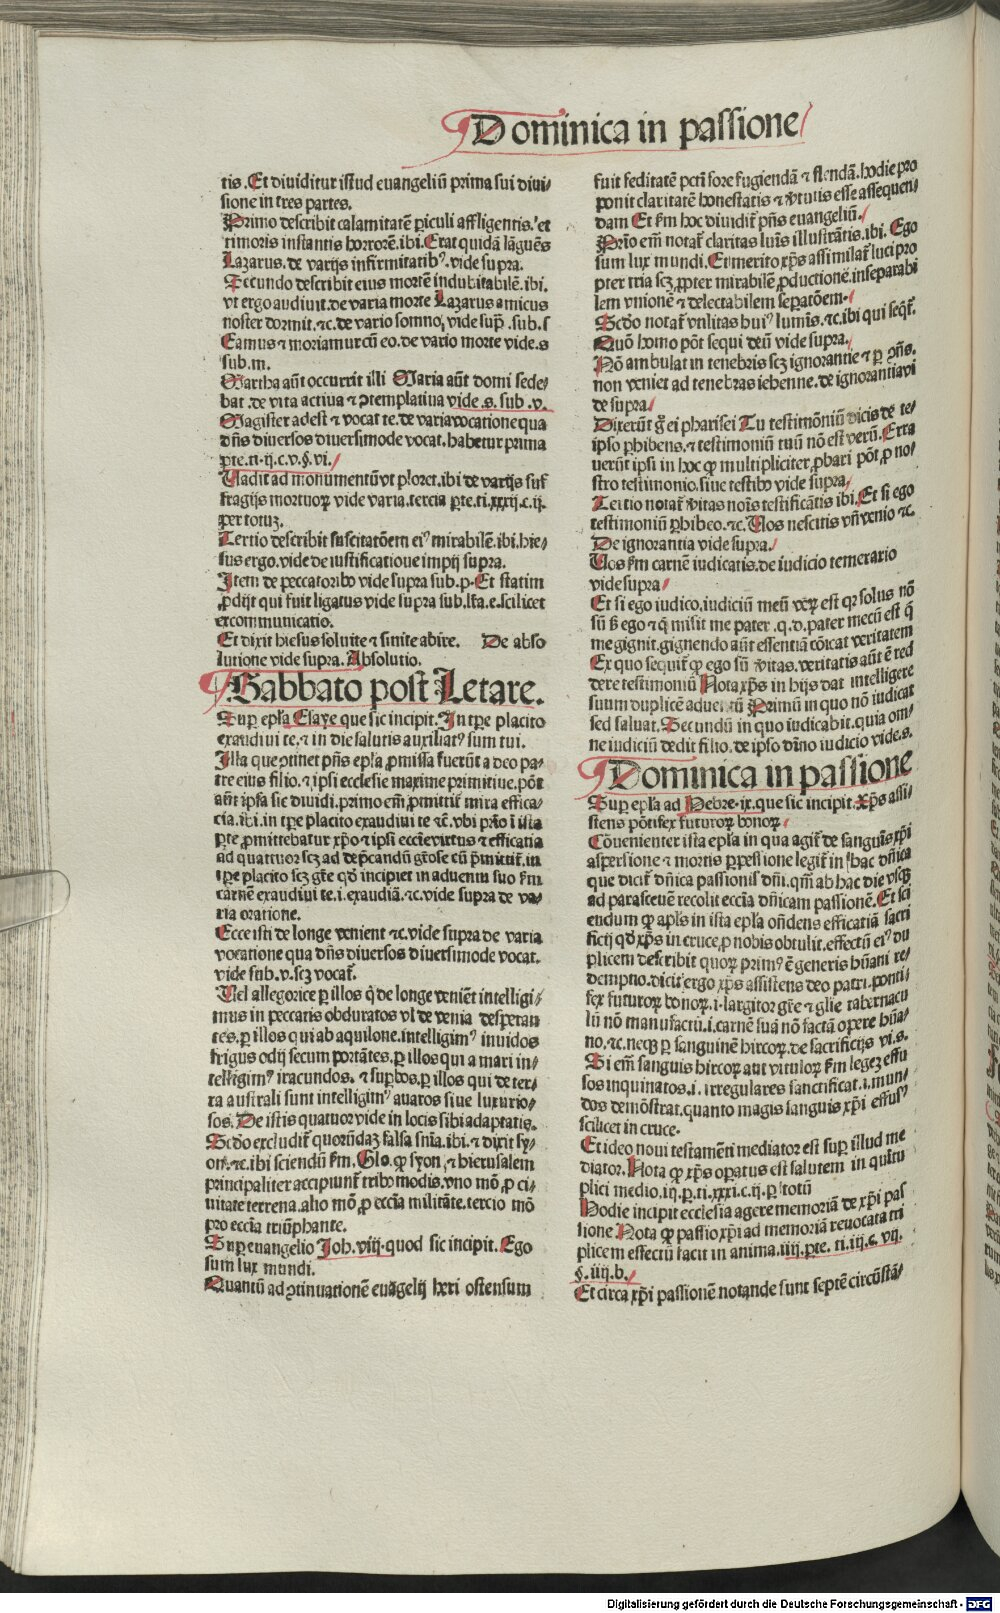 Dominica in passione
tis. Et diuiditur istud euangeliū prima sui diui-
sione in tres partes.
Primo describit calamitatē ꝑiculi affligentis. et
timoris instantis horrorē. ibi. Erat quidā lāguēs
Lazarus. de varijs infirmitatibꝰ. vide supra.
Secundo describit eius mortē indubitabilē. ibi.
vt ergo audiuit. de varia morte Lazarus amicus
noster dormit. ⁊c. de vario somno, vide sup̄. sub. s
Eamus ⁊ moriamur cū eo. de vario morte vide. s
sub. m.
Martha aūt occurrit illi Maria aūt domi sede-
bat. de vita actiua ⁊ ꝯtemplatiua vide. s. sub. v.
Magister adest ⁊ vocat te. de varia vocatione qua
dn̄s diuersos diuersimode vocat. habetur prima
ꝑte. ti. ij. c. v. §. vi.
Uadit ad monumentū vt ploret. ibi de varijs suf
fragijs mortuoꝝ vide varia. tercia ꝑte. ti. xxxij. c. ij.
per totuȝ.
Tertio describit suscitatōem eiꝰ mirabilē. ibi. hie-
sus ergo. vide de iustificatioue impij supra.
Item de peccatoribꝰ vide supra sub. p. Et statim
ꝓdijt qui fuit ligatus vide supra sub. lr̄a. e. scilicet
excommunicatio.
Et dixit hiesus soluite ⁊ sinite abire. De abso
lutione vide supra. Absolutio.
Sabbato post Letare.
Sup̄ ep̄la Esaye que sic incipit. In tp̄e placito
exaudiui te. ⁊ in die salutis auxiliatꝰ sum tui.
Illa que ꝯtinet pn̄s ep̄la ꝓmissa fuerūt a deo pa-
tre eius filio. ⁊ ipsi ecclesie maxime primitiue. pōt
aūt ip̄sa sic diuidi. primo em̄ ꝓmittit̄ mira effica-
cia. ibi. in tp̄e placito exaudiui te ⁊c̄. vbi prīo ī ista
ꝑte ꝓmittebatur xp̄o ⁊ ipsi eccl̄ie virtus ⁊ efficatia
ad quattuor scȝ ad dep̄candū gr̄ose cū p̄mittit̄. in
tp̄e placito scȝ gr̄e qd̄ incipiet in aduentu suo fm̄
carnē exaudiui te. i. exaudiā. ⁊c. vide supra de va-
ria oratione.
Ecce isti de longe venient ⁊c. vide supra de varia
vocatione qua dn̄s diuersos diuersimode vocat.
vide sub. v. scȝ vocat̄.
Uel allegorice ꝑ illos q̄ de longe veniēt intelligi-
mus in peccatis obduratos vl̄ de venia desperan
tes. ꝑ illos qui ab aquilone. intelligimꝰ inuidos
frigus odij secum portātes. ꝑ illos qui a mari in-
telligimꝰ iracundos. ⁊ suꝑbos. ꝑ illos qui de ter-
ra australi sunt intelligimꝰ auaros siue luxurio-
sos. De istis quatuor vide in locis sibi adaptatis.
Scd̄o excludit̄ quorūdaȝ falsa sn̄ia. ibi. ⁊ dixit sy-
on. ⁊c. ibi sciendū fm. Glo. ꝙ syon, ⁊ hierusalem
principaliter accipiunt̄ tribꝰ modis. vno mō ꝓ ci-
uitate terrena. alio mō ꝓ ecc̄ia militāte. tercio mō
pro ecc̄ia triūphante.
Super euangelio Joh. viij. quod sic incipit. Ego
sum lux mundi.
Quantū ad ꝯtinuationē euāgelij heri ostensum
fuit feditatē pctī fore fugiendā ⁊ flendā. hodie pro
ponit claritatē honestatis ⁊ v̄tutis esse assequen-
dam Et fm hoc diuidit̄ pn̄s euangeliū.
Prīo em̄ notat̄ claritas luīs illustrātis. ibi. Ego
sum lux mundi. Et merito xp̄s assimilat̄ luci pro
pter tria scȝ ꝓpter mirabilē ꝓductionē. inseparabi
lem vnionē ⁊ delectabilem seꝑatōem.
Scd̄o notat̄ vtilitas huiꝰ lumīs. ⁊c. ibi qui seqt̄.
Quō homo pōt sequi deū vide supra.
Nō ambulat in tenebris scȝ ignorantie ⁊ ꝑ ꝯn̄s.
non veniet ad tenebras iehenne. de ignorantia vi
de supra.
Dixerūt g̊ ei pharisei Tu testimōniū dicis de te-
ipso ꝑhibens. ⁊ testimoniū tuū nō est verū. Erra
uerūt ipsi in hoc ꝙ multipliciter ꝓbari pōt ꝓ no-
stro testimonio. siue testibꝰ vide supra.
Tertio notat̄ v̄itas noīs testificātis ibi. Et si ego
testimoniū ꝑhibeo. ⁊c. Uos nescitis vn̄ venio ⁊c.
De ignorantia vide supra.
Uos fm carnē iudicatis. de iudicio temerario
vide supra
Et si ego iudico. iudiciū meū veꝝ est qꝛ solus nō
sū ß ego ⁊ q̄ misit me pater. q. d. pater mecū est q̄
me gignit. gignendo aūt essentiā cōicat veritatem
Ex quo sequit̄ ꝙ ego sū v̄itas. veritatis aūt ē red
dere testimoniū Nota xp̄s in hijs dat intelligere
suum duplicē aduentū Primū in quo nō iudicat
sed saluat. Secundū in quo iudicabit. quia om-
ne iudiciū dedit filio. de ipso dīno iudicio vide. s.
Dominica in passione
Sup̄ ep̄la ad Hebre. ix. que sic incipit. Xp̄s assi-
stens pōtifex futuroꝝ bonoꝝ
Cōuenienter ista ep̄la in qua agit̄ de sanguīs xp̄i
aspersione ⁊ mortis ꝑpessione legit̄ in hac dn̄ica
que dicit̄ dn̄ica passionis dn̄i. qm̄ ab hac die vsqȝ
ad parasceuē recolit ecc̄ia dn̄icam passionē. Et sci
endum ꝙ apl̄s in ista ep̄la on̄dens efficatiā sacri
ficij qd̄ xp̄s in cruce, ꝓ nobis obtulit. effectū eiꝰ du
plicem describit quoꝝ primꝰ ē generis hūani re-
demptio. dicit̄ ergo xp̄s assistens deo patri. ponti-
fex futuroꝝ bonoꝝ. i. largitor gr̄e ⁊ gl̄ie tabernacu
lū nō manufactū. i. carnē suā nō factā opere hūa-
no. ⁊c. neqȝ ꝑ sanguinē hircoꝝ. de sacrificijs vi. s.
Si em̄ sanguis hircoꝝ aut vituloꝝ fm legeȝ effu
sos inquinatos. i. irregulares sanctificat. i. mun-
dos demōstrat. quanto magis sanguis xp̄i effusꝰ
scilicet in cruce.
Et ideo noui testamēti mediator est sup̄ illud me
diator. Nota ꝙ xp̄s oꝑatus est salutem in quītu
plici medio. iij. ꝑ. ti. xxxi. c. ij. ꝑ totū
Hodie incipit ecclesia agere memoriā de xp̄i pas
sione Nota ꝙ passio xp̄i ad memoriā reuocata tri
plicem effectū facit in anima. iiij. ꝑte. ti. iij. c. vij.
§. iij. b.
Et circa xp̄i passionē notande sunt septē circūstā-
Digitalisierung gefördert durch die Deutsche Forschungsgemeinschaft - DFG